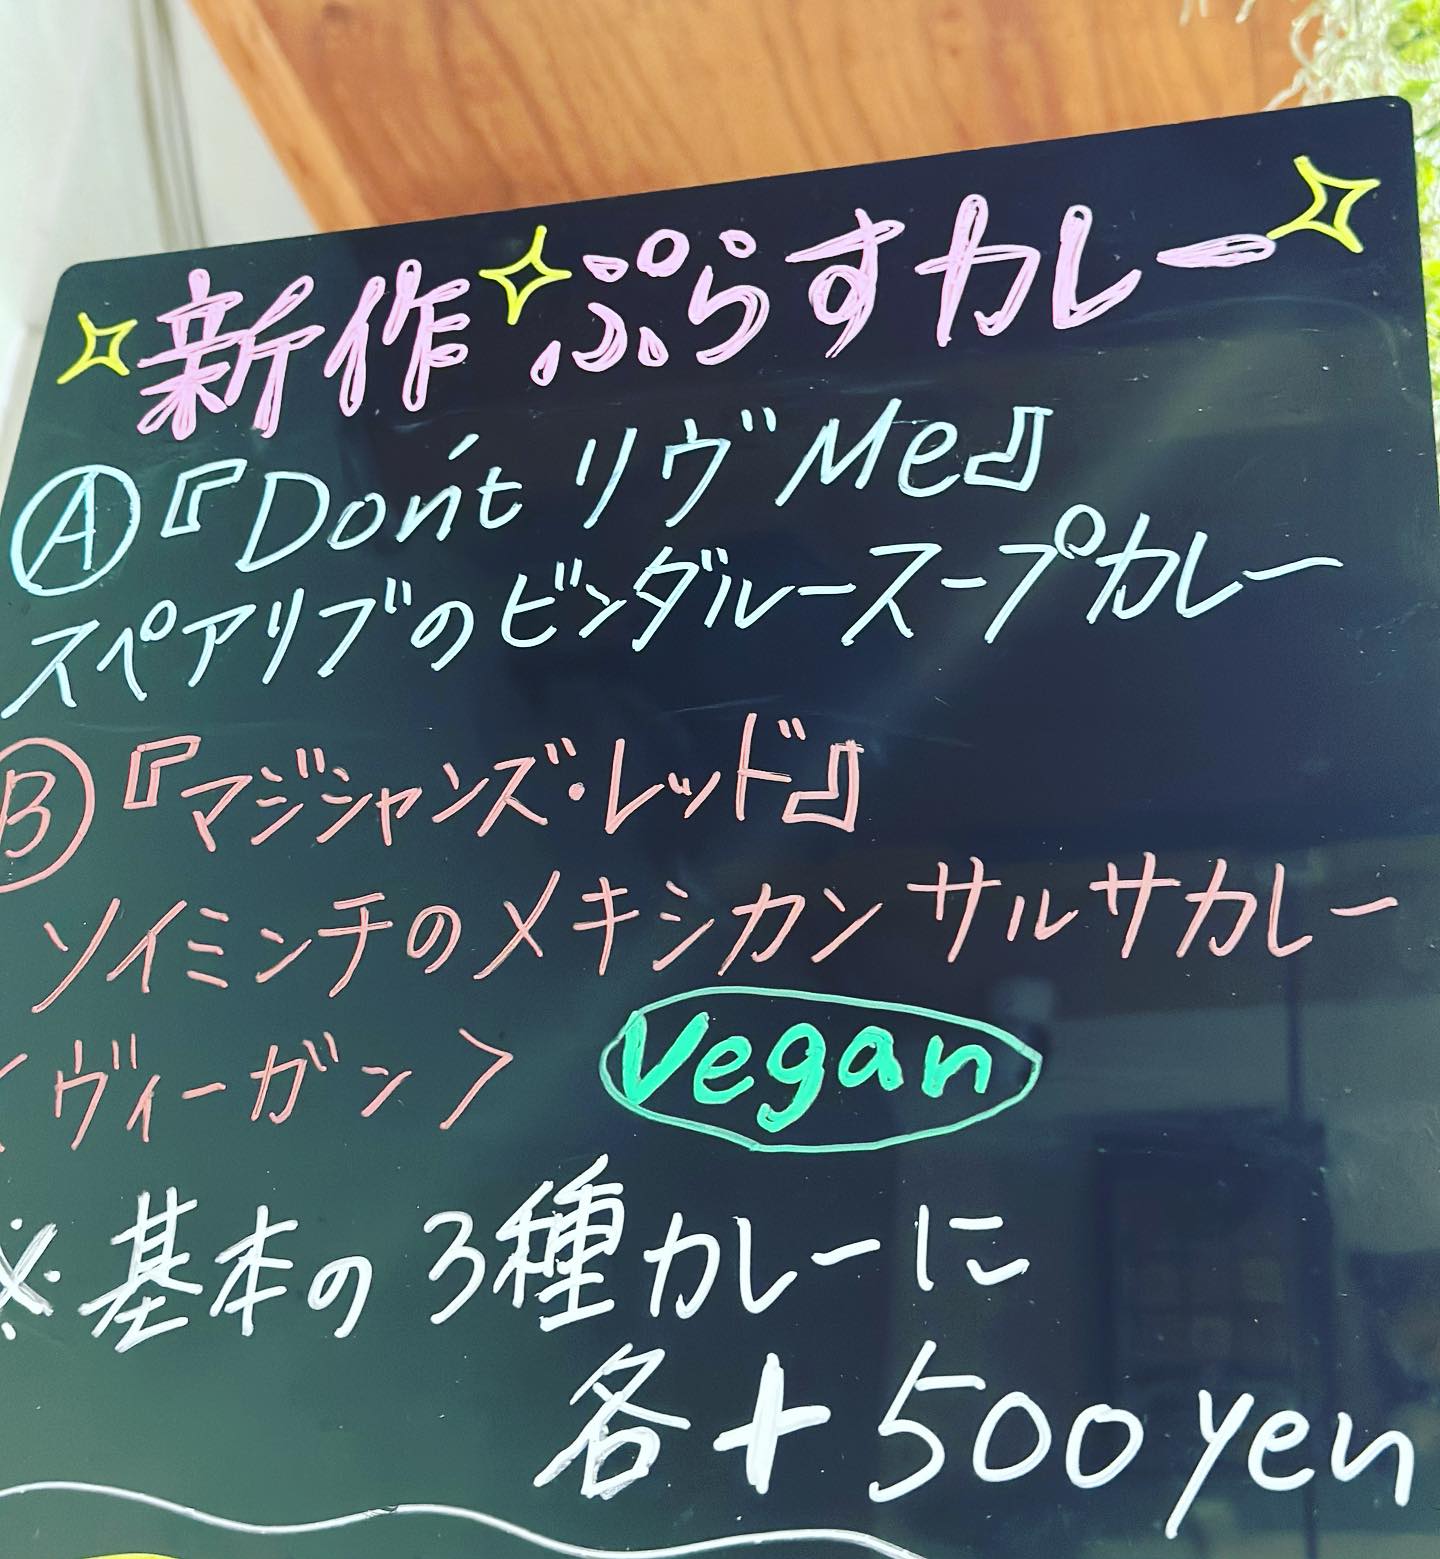 新作 ぷらすカレー
Ⓐ『Don't リヴ Me』
スペアリブのビンダルースープカレー
Ⓑ『マジシャンズ・レッド』
ソイミンチのメキシカン サルサカレー
<ヴィーガン> Vegan
※基本の3種カレーに
各+500yen